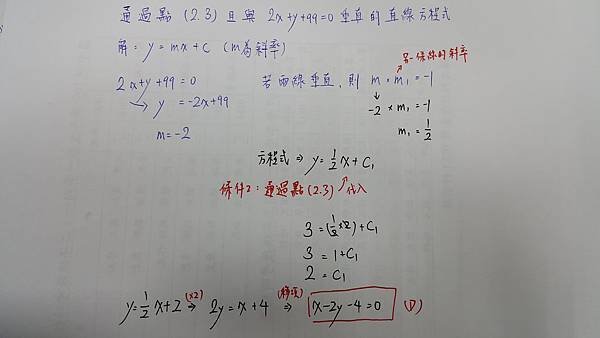 通過點(2.3)且與 2x+y+99=0 垂直的直線方程式
解: y=mx+c (m為斜率)
另一條線的斜率
2x+y+99=0 若兩線垂直,則 m×m₁=-1
→ y=-2x+99 ↓ -2×m₁=-1
m=-2 m₁=1/2
方程式⇒ y=1/2x+C₁
條件2:通過點(2.3)↗代入
3=(1/2×2)+C₁
3=1+C₁
2=C₁
y=1/2x+2 (x2)→ 2y=x+4 (移項)⇒ x-2y-4=0 (D)